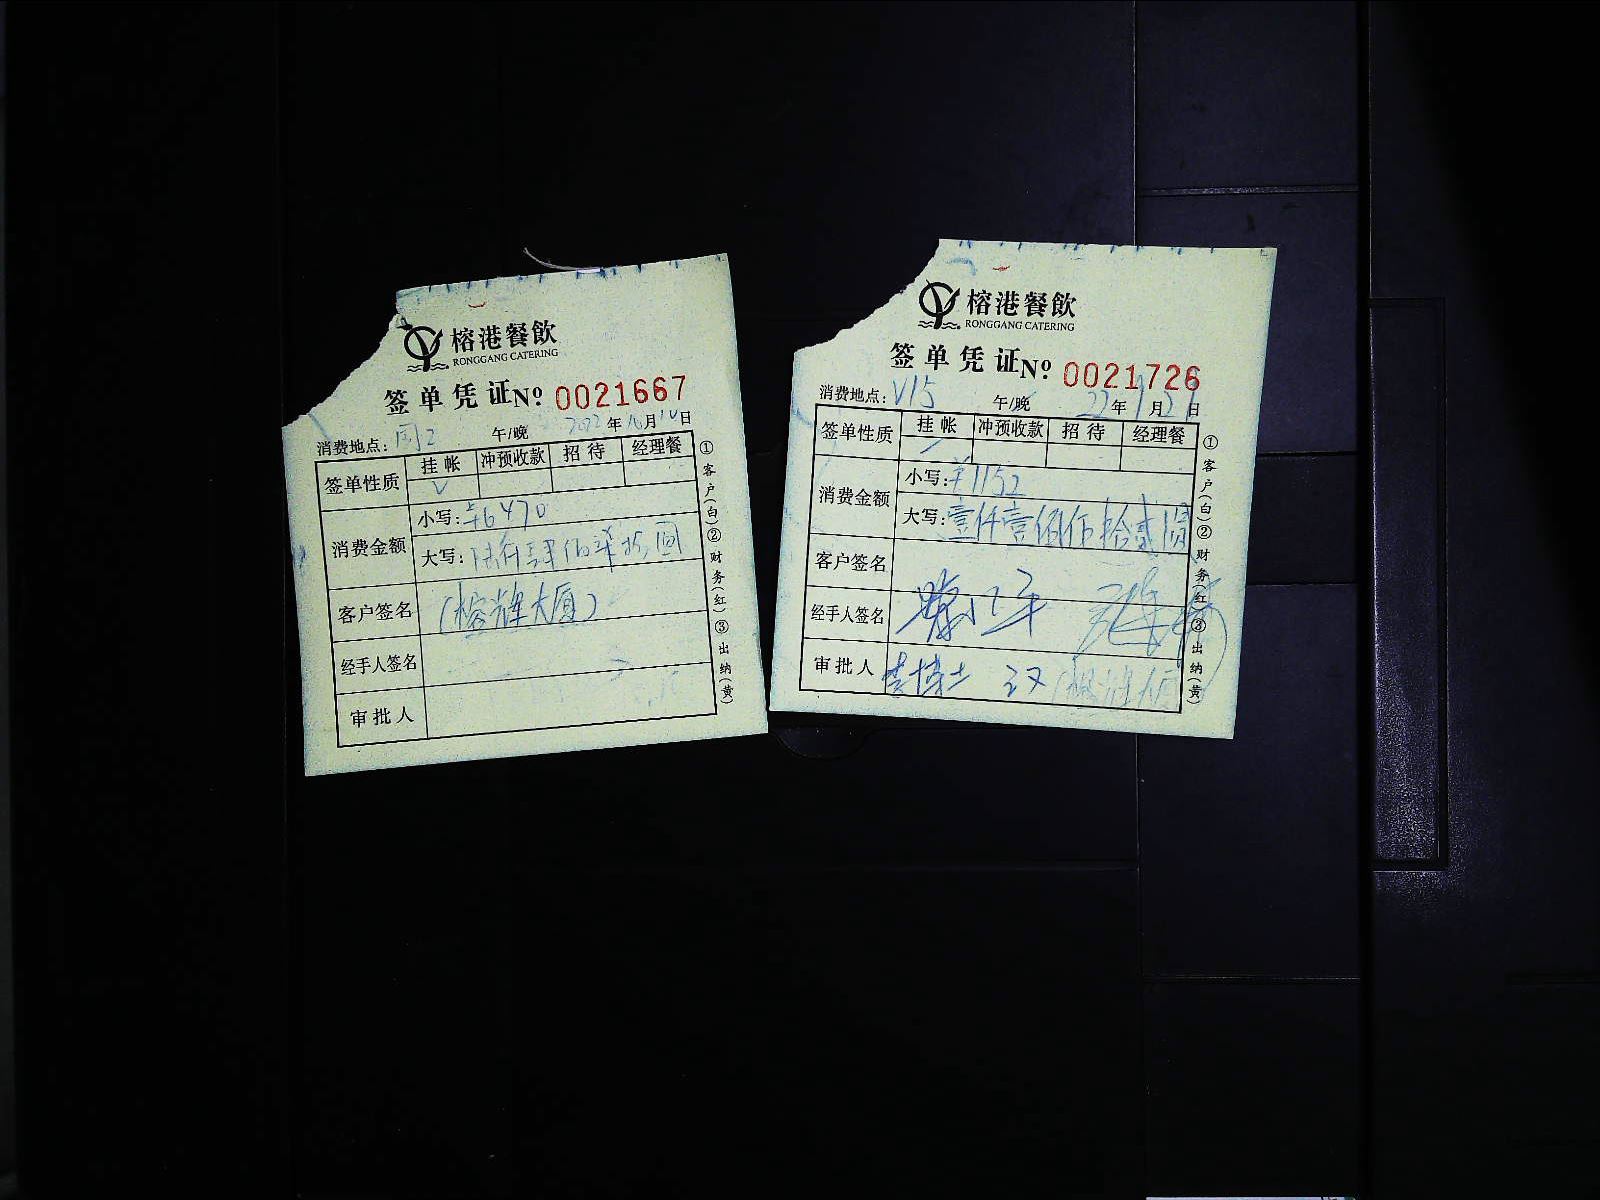 榕港餐飲
RONGGANG CATERING
签单凭证 Nº 0021667
消费地点: 午/晚 2022年10月10日
签单性质 挂帐 冲预收款 招待 经理餐
V
消费金额 小写: ¥6470
大写: 陆仟肆佰柒拾圆
客户签名 (榕辉大厦)
经手人签名
审批人
①客户(白)②财务(红)③出纳(黄)
榕港餐飲
RONGGANG CATERING
签单凭证 Nº 0021726
消费地点: V15 午/晚 22年9月27日
签单性质 挂帐 冲预收款 招待 经理餐
消费金额 小写: ¥1152
大写: 壹仟壹佰伍拾贰圆
客户签名
经手人签名
审批人
①客户(白)②财务(红)③出纳(黄)